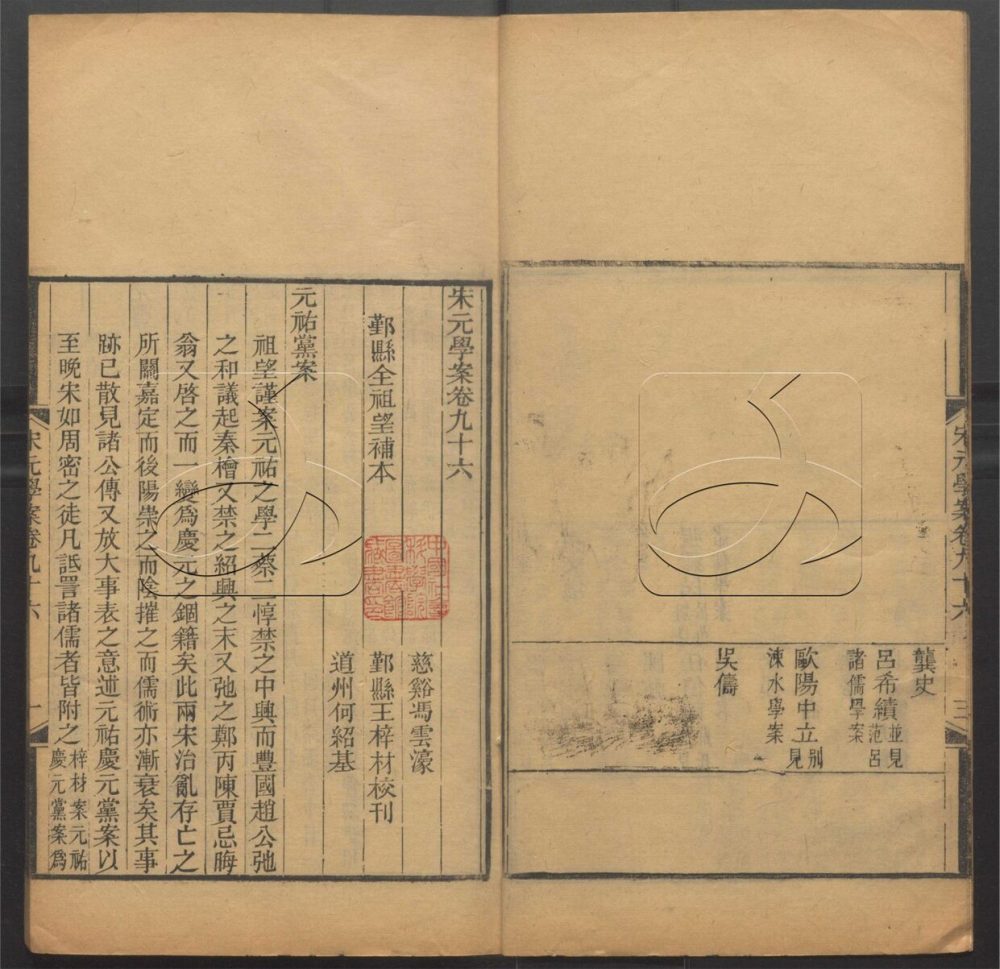 宋元學案卷九十六
三
龔史
呂希績並見范呂
諸儒學案
歐陽中立別見
涑水學案
吳儔
宋元學案卷九十六
慈谿馮雲濠
鄞縣全祖望補本
鄞縣王梓材校刊
道州何紹基
元祐黨案
祖望謹案元祐之學二蔡二惇禁之中興而豐國趙公弛
之和議起秦檜又禁之紹興之末又弛之鄭丙陳賈忌晦
翁又啓之而一變爲慶元之錮籍矣此兩宋治亂存亡之
所關嘉定而後陽崇之而陰摧之而儒術亦漸衰矣其事
跡已散見諸公傳又放大事表之意述元祐慶元黨案以
至晚宋如周密之徒凡詆詈諸儒者皆附之梓材案元祐
慶元黨案爲
宋元學案卷九十六
一